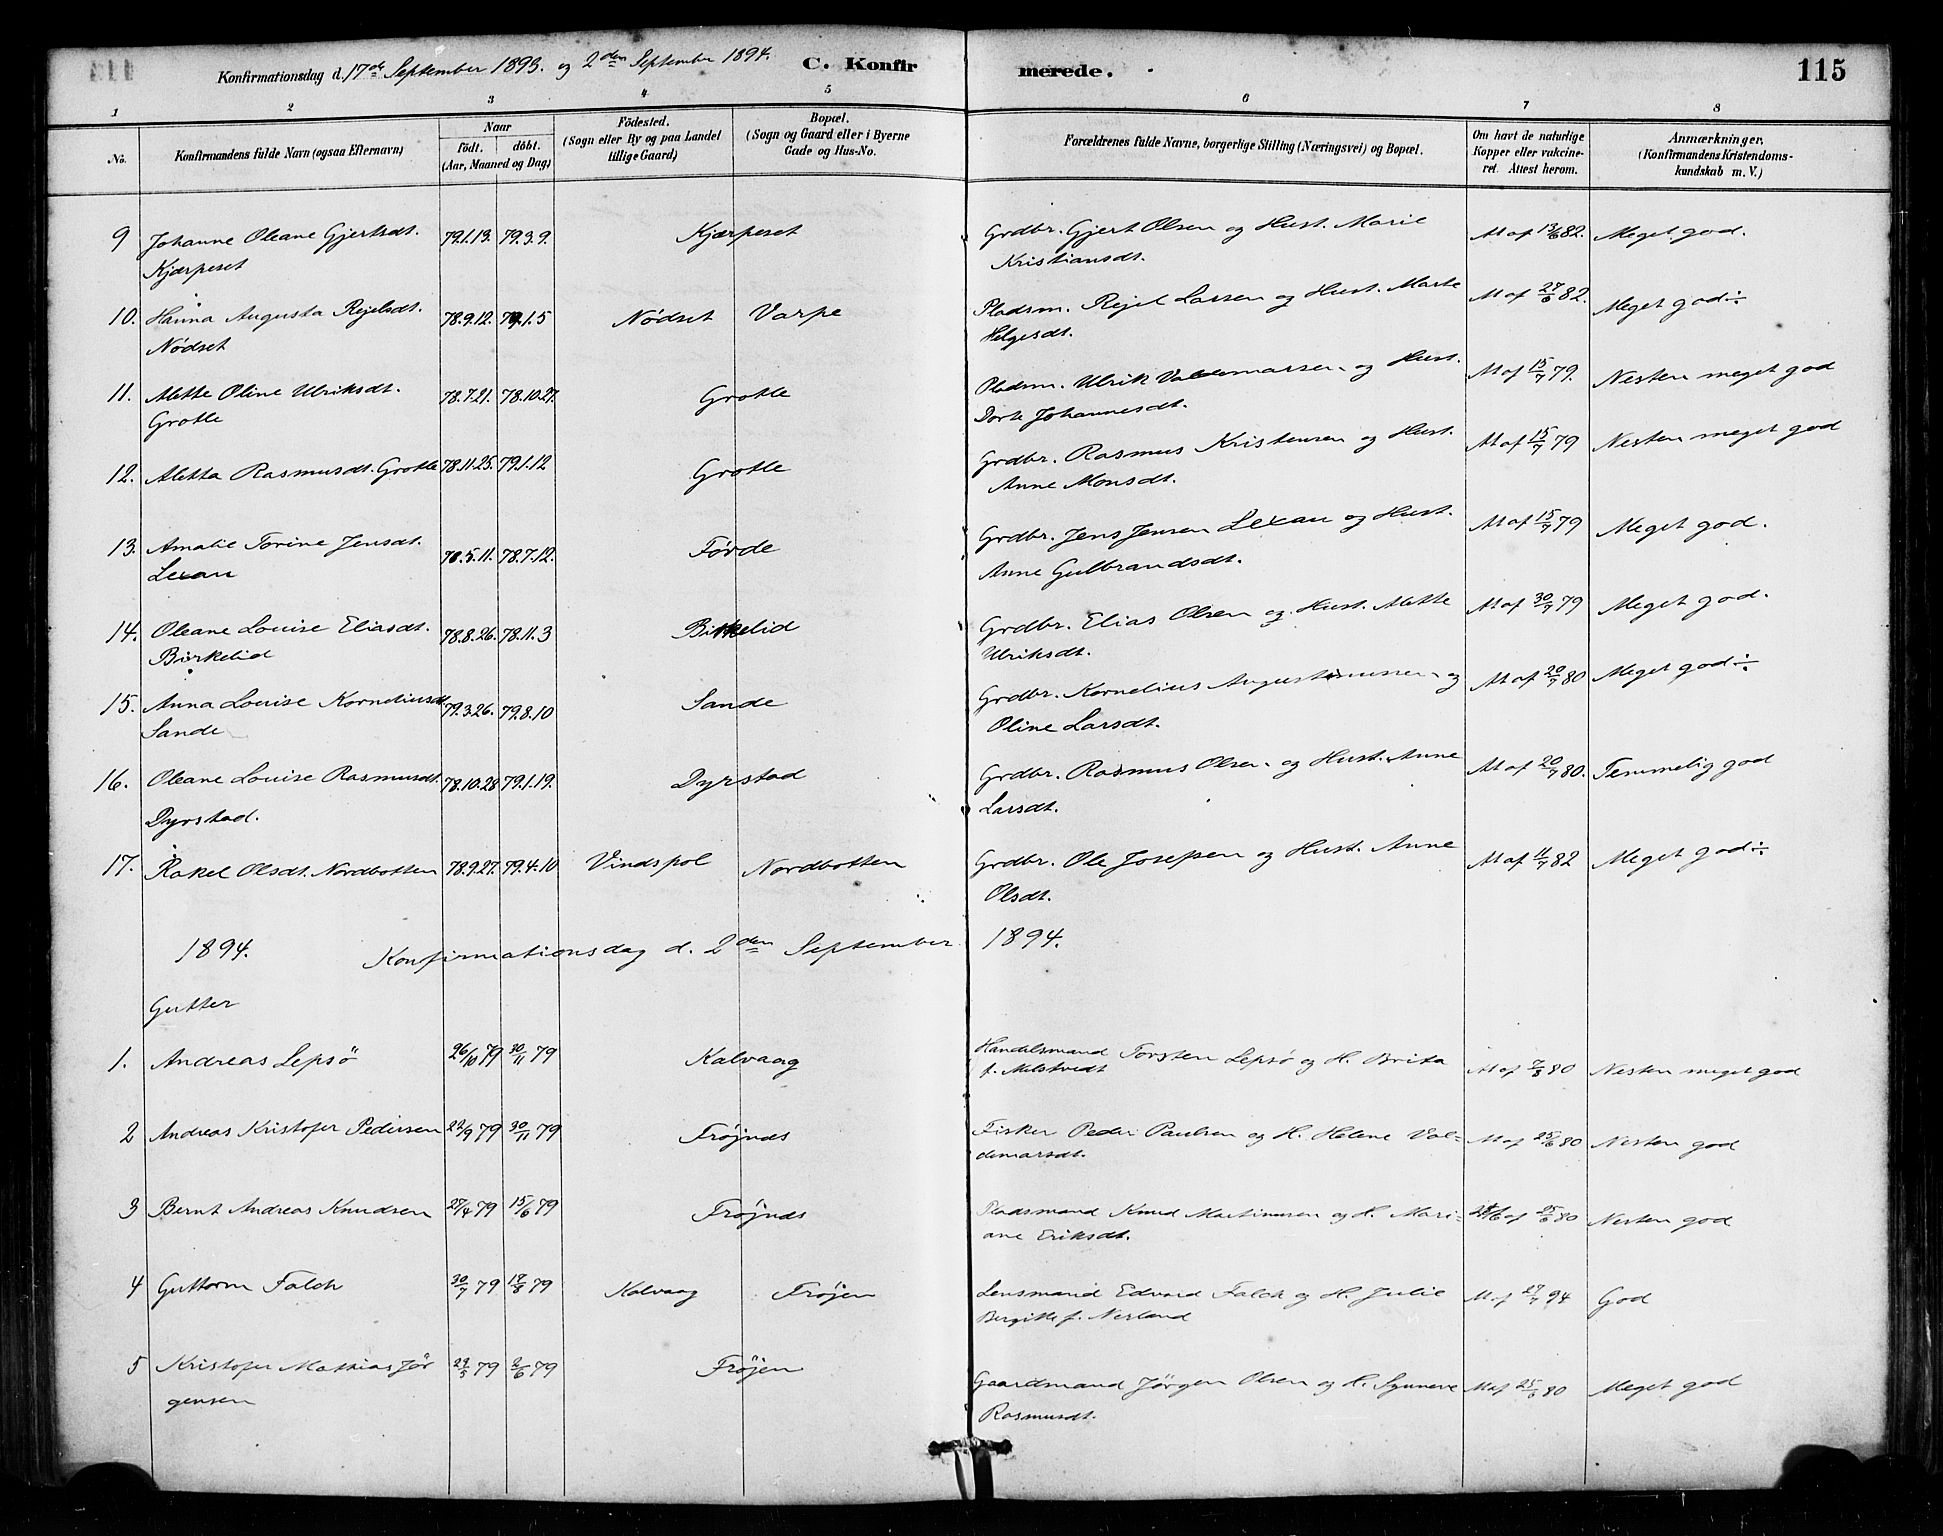 Konfirmationsdag d. 17de September 1893. og 2den September 1894. C. Konfirmerede. 115
1 2 3 4 5 6 7 8
No. Konfirmandens fulde Navn (ogsaa Efternavn) Naar født. døbt. (Aar, Maaned og Dag) Födested. (Sogn eller By og paa Landet tillige Gaard) Bopæl. (Sogn og Gaard eller i Byerne Gade og Hus-No. Forældrenes fulde Navne, borgerlige Stilling (Næringsvei) og Bopæl. Om havt de naturlige Kopper eller vakcineret. Attest herom. Anmærkninger. (Konfirmandens Kristendomskundskab m. V.)
9 Johanne Oleane Gjertsdt. 79.1.13. 79.3.9. Kjærpeset Grdbr. Gjert Olsen og Hust. Marie At af 13/6 82. Meget god.
Kjærpeset Kristiansdt.
10. Hanna Augusta Rejelsdt. 78.9.12. 79.1.5 Nödset Varpe Pladsm. Rejel Larsen og Hust. Marte At af 27/6 82. Meget god ÷
Nödset Helgesdt.
11. Alette Oline Ulriksdt. 78.7.21. 78.10.27. Grotle Pladsm. Ulrik Valdemarsen og Hust. At af 15/7 79. Nesten meget god
Grotle Dorte Johannesdt.
12. Aletta Rasmusdt. Grotle 78.11.25. 79.1.12 Grotle Grdbr. Rasmus Kristensen og Hust. At af 15/7 79 Nesten meget god
Anne Monsdt.
13. Amalie Torine Jensdt. 78.5.11. 78.7.12. Förde Grdbr. Jens Jensen Lexau og Hust. At af 15/7 79 Meget god.
Lexau Anne Gulbrandsdt.
14. Oleane Louise Eliasdt. 78.8.26. 78.11.3 Birkelid Grdbr. Elias Olsen og Hust. Mette At af 30/7 79 Meget god.
Birkelid Ulriksdt.
15. Anna Louise Korneliusdt. 79.3.26. 79.8.10 Sande Grdbr. Kornelius Augustinussen og At af 20/7 80 Meget god ÷
Sande Oline Larsdt.
16. Oleane Louise Rasmusdt. 78.10.28 79.1.19. Dyrstad Grdbr. Rasmus Olsen og Hust. Anne At af 20/7 80. Temmelig god
Dyrstad. Larsdt.
17. Rakel Olsdt. Nordbotten 78.9.27. 79.4.10 Vindspol Nordbotten Grdbr. Ole Josefsen og Hust. Anne At af 11/7 82 Meget god ÷
Olsdt.
1894. Konfirmationsdag d. 2den September 1894.
Gutter
1. Andreas Lepsö 26/10 79 30/11 79 Kalvaag Handelsmand Torsten Lepsø og H. Brita At af 7/8 80 Nesten meget god
f.
2 Andreas Kristofer Pedersen 22/9 79 30/11 79 Fröjnds Fisker Peder Paulsen og H. Helene Val- At af 25/6 80 Nesten god
demarsdt.
3 Bernt Andreas Knudsen 27/4 79 15/6 79 Fröjnds Pladsmand Knud Martinusen og H. Mari- At af 25/6 80 Nesten god
ane Eriksdt.
4 Guttorm Falch 30/7 79 17/8 79 Kalvaag Fröjen Lensmand Edvard Falch og H. Julie At af 27/7 94 God
Bergitte f. Nerland
5 Kristofer Mathias Jör 24/5 79 2/6 79 Fröjen Gaardmand Jörgen Olsen og H. Synneve At af 25/6 80 Meget god
gensen Rasmusdt.